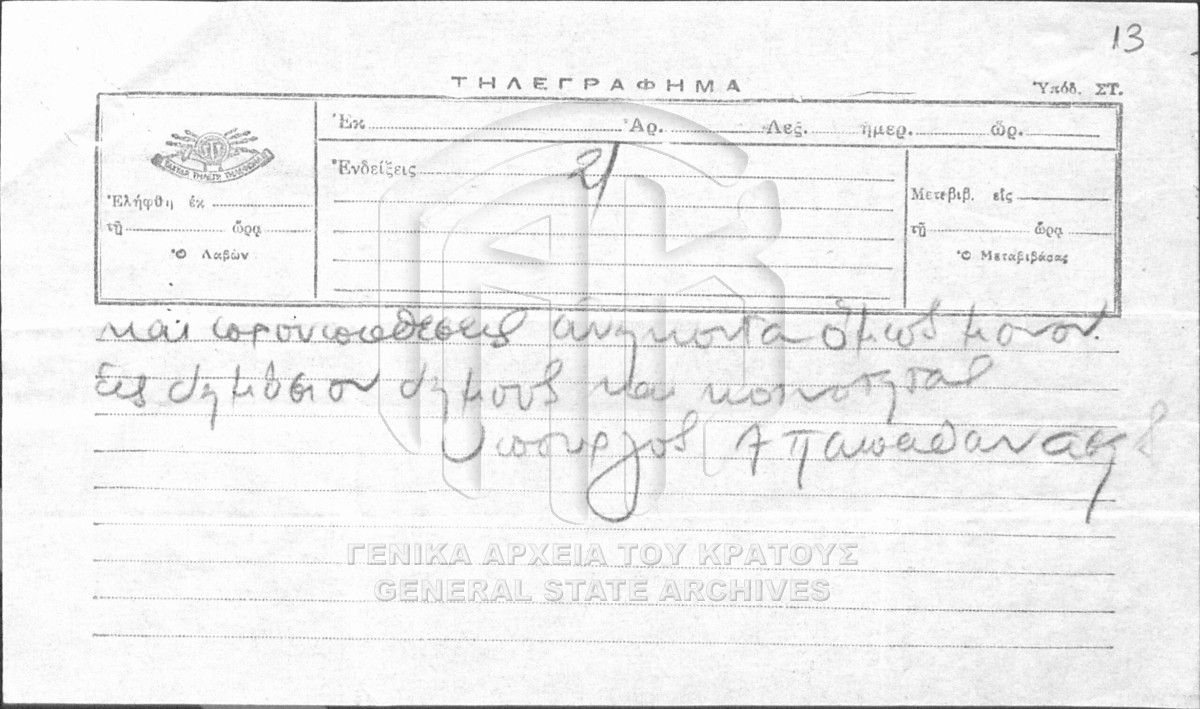 13
ΤΗΛΕΓΡΑΦΗΜΑ
Ὑπόδ. ΣΤ.
Ἐκ Ἀρ. Λεξ. ἡμερ. ὥρ.
Ἐνδείξεις 2/
Ἐλήφθη ἐκ
τῇ ὥρᾳ
Ὁ Λαβὼν
Μετεβιβ. εἰς
τῇ ὥρᾳ
Ὁ Μεταβιβάσας
και προυποθεσεις ανηκοντα όμως μονον
Εις δημόσιον δημους και κοινοτητας
Υπουργος Α Παπαθανάση
ΓΕΝΙΚΑ ΑΡΧΕΙΑ ΤΟΥ ΚΡΑΤΟΥΣ
GENERAL STATE ARCHIVES